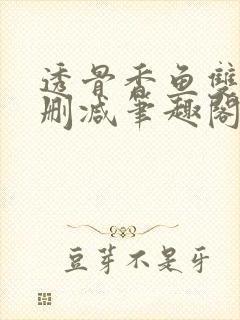 透骨香鱼雙
删减筆趣閣
豆芽不是牙